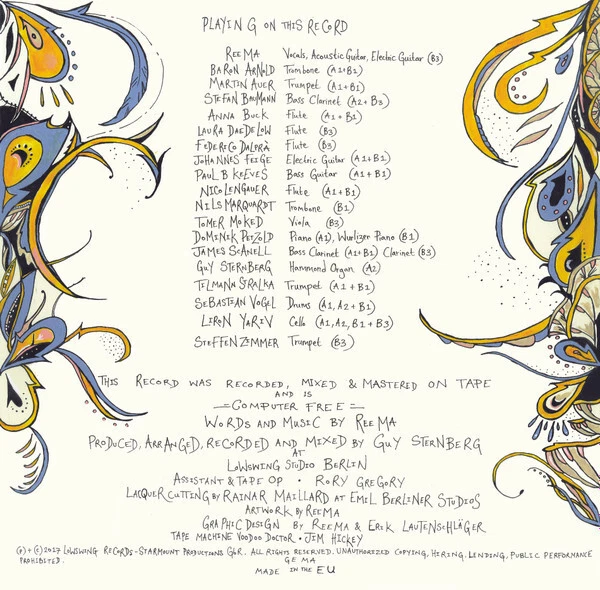 PLAYING ON THIS RECORD
REEMA Vocals, Acoustic Guitar, Electric Guitar (B3)
BARON ARNOLD Trombone (A1+B1)
MARTIN AUER Trumpet (A1+B1)
STEFAN BAUMANN Bass Clarinet (A2+B3)
ANNA BUCK Flute (A1+B1)
LAURA DAEDELOW Flute (B3)
FEDERECO DALPRÀ Flute (B3)
JOHANNES FEIGE Electric Guitar (A1+B1)
PAUL B KEEVES Bass Guitar (A1+B1)
NICO LENGAUER Flute (A1+B1)
NILS MARQUARDT Trombone (B1)
TOMER MOKED Viola (B3)
DOMINIK PETZOLD Piano (A1), Wurlizer Piano (B1)
JAMES SCANELL Bass Clarinet (A1+B1) Clarinet (B3)
GUY STERNBERG Hammond Organ (A2)
TILMANN STRALKA Trumpet (A1+B1)
SEBASTIAN VOGEL Drums (A1, A2+B1)
LIRON YARIV Cello (A1, A2, B1+B3)
STEFFEN ZIMMER Trumpet (B3)
THIS RECORD WAS RECORDED, MIXED & MASTERED ON TAPE
AND IS
COMPUTER FREE
WORDS AND MUSIC BY REEMA
PRODUCED, ARRANGED, RECORDED AND MIXED BY GUY STERNBERG
AT
LOWSWING STUDIO BERLIN
ASSISTANT & TAPE OP • RORY GREGORY
LACQUER CUTTING BY RAINAR MAILLARD AT EMIL BERLINER STUDIOS
ARTWORK BY REEMA
GRAPHIC DESIGN BY REEMA & ERIK LAUTENSCHLÄGER
TAPE MACHINE VOODOO DOCTOR • JIM HICKEY
(P)+(C) 2017 LOWSWING RECORDS-STARMOUNT PRODUCTIONS GbR. ALL RIGHTS RESERVED. UNAUTHORIZED COPYING, HIRING, LENDING, PUBLIC PERFORMANCE
PROHIBITED. GEMA
MADE IN THE EU